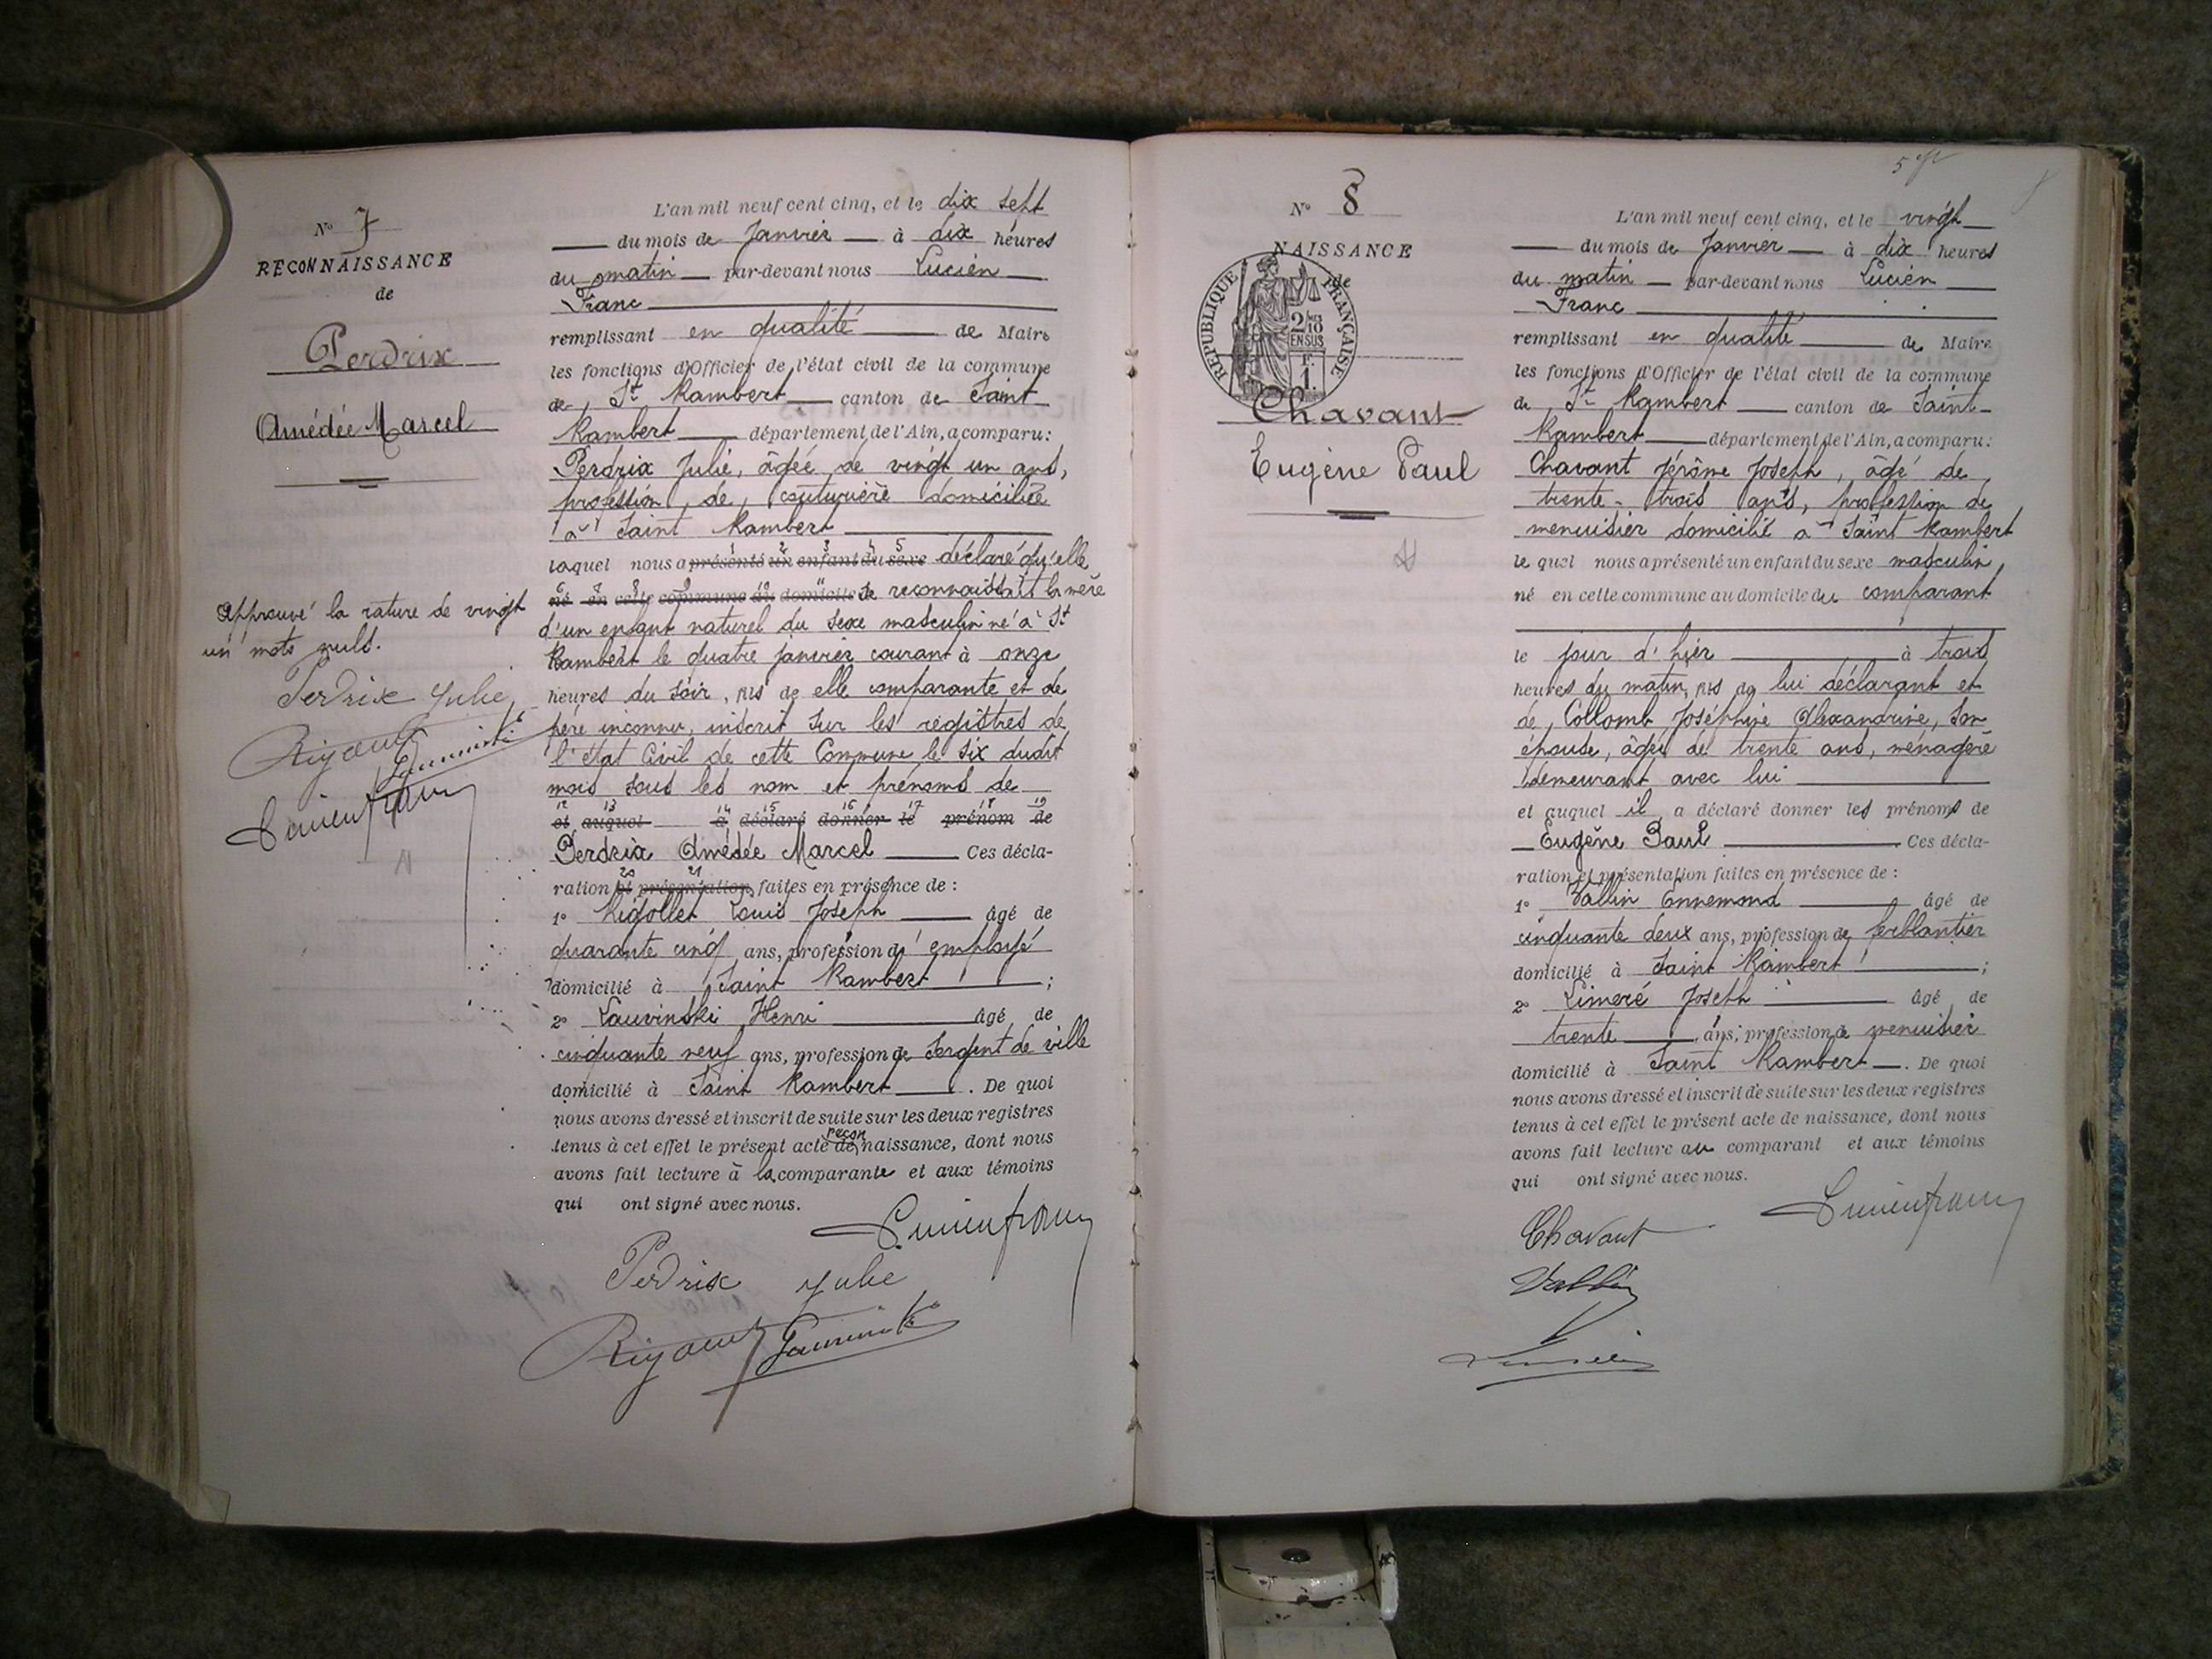 N° 7
RECONNAISSANCE
de
Perdrix
Amédée Marcel
Approuvé la rature de vingt
un mots nuls.
Perdrix Julie
L'an mil neuf cent cinq, et le dix sept
du mois de Janvier à dix heures
du matin par-devant nous Lucien
Franc
remplissant en qualité de Maire
les fonctions d'Officier de l'état civil de la commune
de St Rambert canton de Saint
Rambert département de l'Ain, a comparu:
Perdrix Julie, âgée de vingt un ans,
profession de couturière domiciliée
à Saint Rambert
laquel nous a présenté un enfant du sexe déclaré qu'elle
né en cette commune au domicile de se reconnaissait la mère
d'un enfant naturel du sexe masculin né à St
Rambert le quatre janvier courant à onze
heures du soir, fils de elle comparante et de
père inconnu, inscrit sur les registres de
l'état Civil de cette Commune le six dudit
mois sous les nom et prénoms de
et auquel a déclaré donner le prénom de
Perdrix Amédée Marcel Ces décla-
ration et présentation faites en présence de :
1° Rigollet Louis Joseph âgé de
quarante cinq ans, profession d' employé
domicilié à Saint Rambert ;
2° Lauvinski Henri âgé de
cinquante neuf ans, profession de Sergent de ville
domicilié à Saint Rambert . De quoi
nous avons dressé et inscrit de suite sur les deux registres
tenus à cet effet le présent acte de reconnaissance, dont nous
avons fait lecture à la comparante et aux témoins
qui ont signé avec nous.
Perdrix Julie
5
N° 8
NAISSANCE
de
RÉPUBLIQUE FRANÇAISE
2/10 EN SUS
F. 1.
Chavant
Eugène Paul
L'an mil neuf cent cinq, et le vingt
du mois de Janvier à dix heures
du matin par-devant nous Lucien
Franc
remplissant en qualité de Maire
les fonctions d'Officier de l'état civil de la commune
de St Rambert canton de Saint-
Rambert département de l'Ain, a comparu:
Chavant Jérôme Joseph, âgé de
trente-trois ans, profession de
menuisier domicilié à Saint Rambert
le quel nous a présenté un enfant du sexe masculin
né en cette commune au domicile du comparant
le jour d'hier à trois
heures du matin, fils de lui déclarant et
de Collomb Joséphine Alexandrine, son
épouse, âgée de trente ans, ménagère
demeurant avec lui
et auquel il a déclaré donner les prénoms de
Eugène Paul . Ces décla-
ration et présentation faites en présence de :
1° Vallin Ennemond âgé de
cinquante deux ans, profession de ferblantier
domicilié à Saint Rambert ;
2° Limeré Joseph âgé de
trente ans, profession de menuisier
domicilié à Saint Rambert . De quoi
nous avons dressé et inscrit de suite sur les deux registres
tenus à cet effet le présent acte de naissance, dont nous
avons fait lecture au comparant et aux témoins
qui ont signé avec nous.
Chavant
Vallin